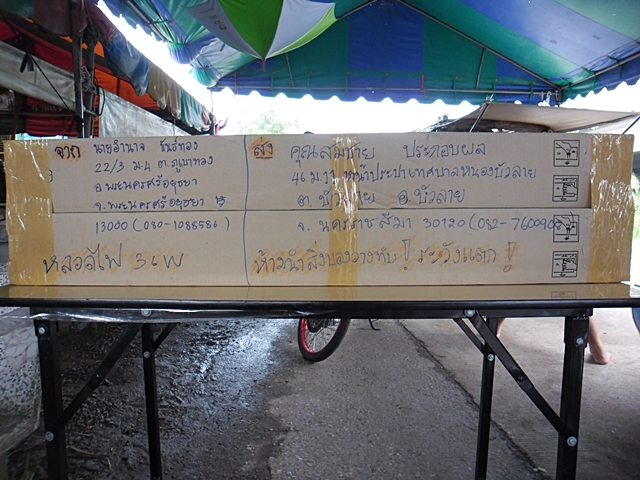 จาก นายอำนาจ ขันธ์ทอง
22/3 ม.4 ต.ภูเขาทอง
อ.พระนครศรีอยุธยา
จ.พระนครศรีอยุธยา
13000 (080-1088586)
หลอดไฟ 36W
ส่ง คุณสมชาย ประกอบผล
46 ม.11 หน้าประปาเทศบาลหนองบัวลาย
ต.บัวลาย อ.บัวลาย
จ.นครราชสีมา 30120 (082-760090
ห้ามนำสิ่งของวางทับ! ระวังแตก!!